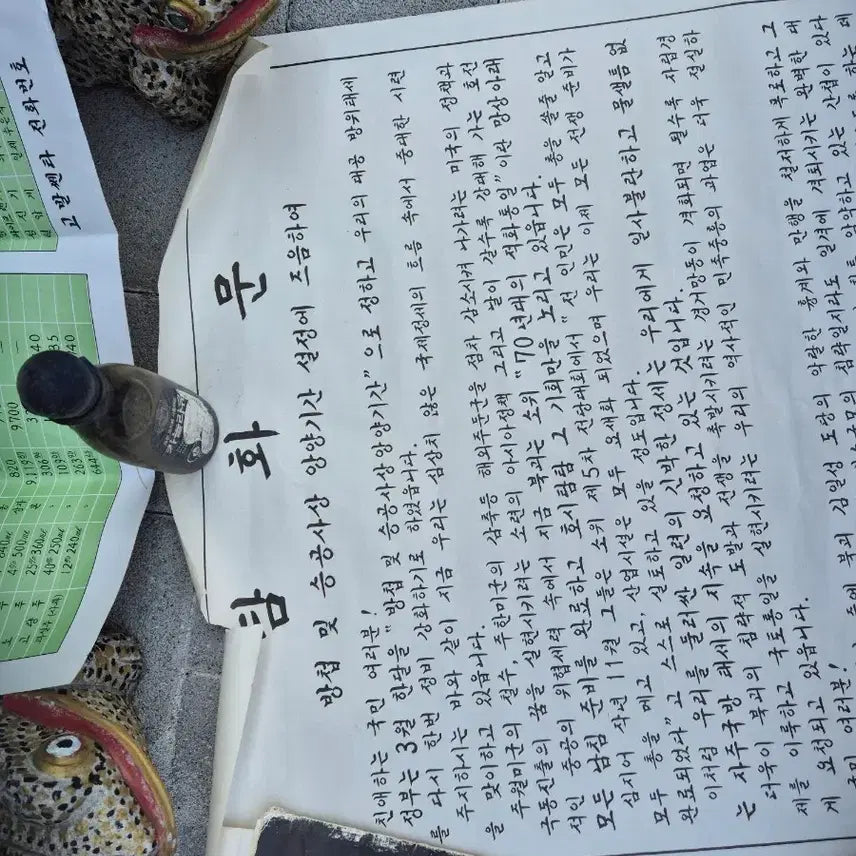 고발쎈타 전화번호
820
9700
9,119원
4작 500㎖
25도 300㎖
306
40도 250㎖
109원
12도 240㎖
263
644
담화문
방첩 및 승공사상 앙양기간 설정에 즈음하여
친애하는 국민 여러분!
정부는 3월 한달을 "방첩 및 승공사상앙양기간"으로 정하고 우리의 대공 방위태세
를 다시 한번 정비 강화하기로 하였읍니다.
주지하시는 바와 같이 지금 우리는 심상치 않은 국제정세의 흐름 속에서 중대한 시련
을 맞이하고 있읍니다.
주월미군의 철수, 주한미군의 감축등 해외주둔군을 점차 감소시켜 나가려는 미국의 정책과
극동진출의 꿈을 실현시키려는 소련의 아시아정책 그리고 날이 갈수록 강대해 가는 호전
적인 중공의 위협세력 속에서 지금 북괴는 소위 "70년대의 적화통일"이란 망상아래
모든 남침 준비를 완료하고 호시탐탐 그 기회만을 노리고 있읍니다.
심지어 작년 11월 그들은 소위 제5차 전당대회에서 "전 인민은 모두 총을 쏠줄 알고
모두 총을 메고 있고, 산업시설은 모두 요새화 되었으며 우리는 이제 모든 전쟁 준비가
완료되었다"고 스스로 실토하고 있을 정도입니다.
이처럼 우리를 둘러싼 일련의 긴박한 정세는 우리에게 일사불란하고 물샐틈 없
는 자주국방 태세의 지속을 요청하고 있는 것입니다.
더욱이 북괴의 침략적 도발과 전쟁을 촉발시키려는 경거망동이 격화되면 될수록 자립경
제를 이룩하고 국토통일을 실현시키려는 우리의 역사적인 민족중흥의 과업은 더욱 절실하
게 요청되고 있읍니다.
국민 여러분!
속에 북괴 김일성 도당의 악랄한 흉계와 만행을 철저하게 폭로하고 그
침략일지라도 일격에 격퇴시키는 완벽한 대
암약하고 있는 간첩이 있다